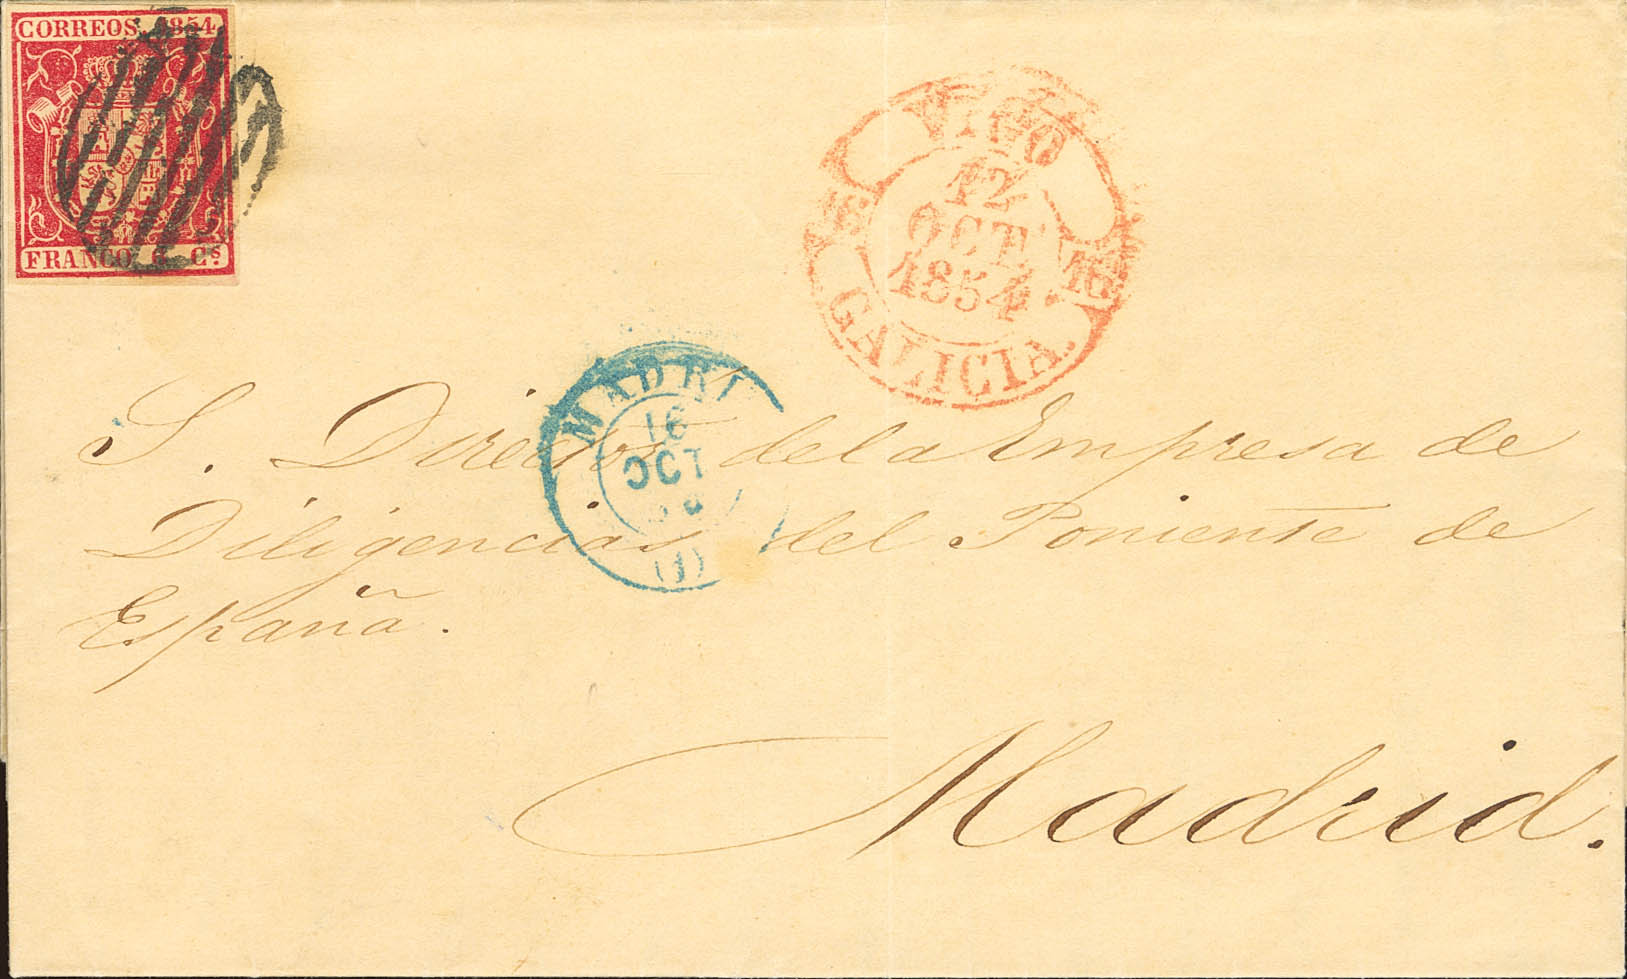 CORREOS. 1854
FRANCO 6 Cs.
VIGO
12
OCT
1854
16 16
GALICIA.
MADRI
16
OCT
(1)
S. Director de la Empresa de
Diligencias del Poniente de
España.
Madrid.